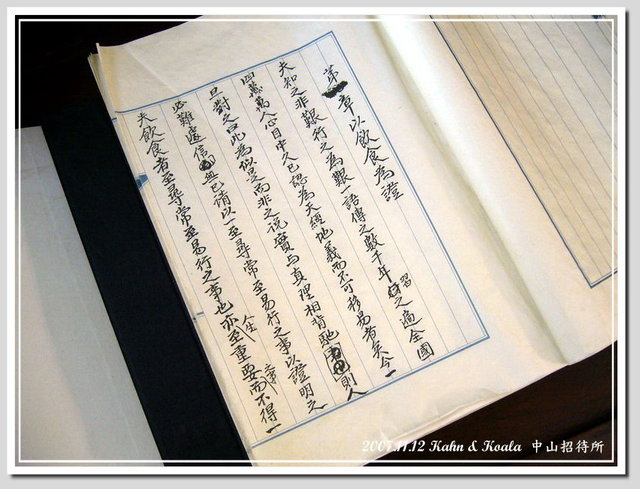 第章以飲食為證
夫知之非艱行之為艱一語傳之數千年習之遍全國
四萬萬人心目中久已認為天經地義而不可移易者矣今一
旦對之曰此為似是而非之說實与真理相背馳則人
必難遽信無已請以一至尋常至易行之事以證明之
夫飲食者至尋常至易行之事也亦人生至重要之事而不得一
2007.11.12 Kahn & Koala 中山招待所